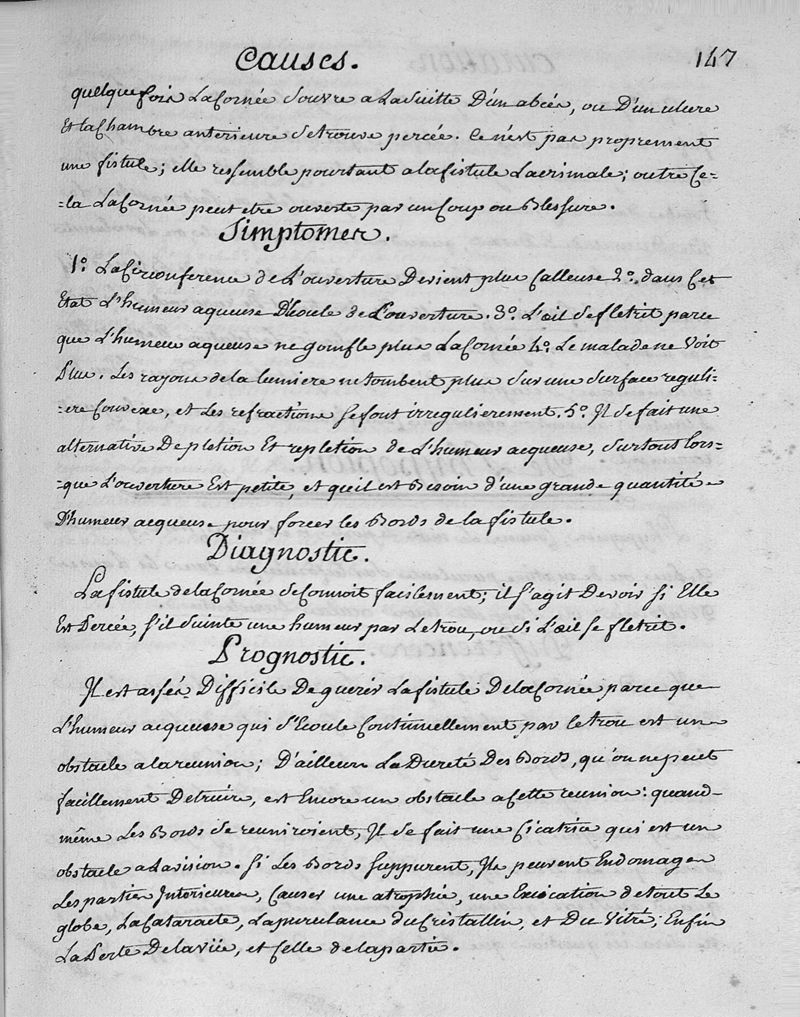 Causes. 147
quelque fois La Cornée s'ouvre a La Suitte D'un abcés, ou D'un ulcere
Et la Chambre anterieure se trouve percée. Ce n'est pas proprement
une fistule; elle ressemble pourtant a la fistule Lacrimale; outre Ce=
=la La Cornée peut etre ouverte par un Coup ou Blessure.
Simptomes.
1º. La Circonference de L'ouverture Devient plus Calleuse 2º. dans Cet
Etat L'humeur aqueuse D'écoule de L'ouverture. 3º. L'œil se fletrit parce
que L'humeur aqueuse ne gonfle plus La Cornée 4º. Le malade ne Voit
Plus. Les rayons de la lumiere ne tombent plus sur une surface reguli=
=ere Convexe, et Les refractions se font irregulierement. 5º. Il se fait une
alternative De pletion Et repletion de L'humeur acqueuse, surtout lors=
=que L'ouverture Est petite, et qu'il est Besoin d'une grande quantité
D'humeur acqueuse pour forcer les Bords de la fistule.
Diagnostic.
La fistule de la Cornée se Connoit facilement; il s'agit De voir si Elle
Est Percée, s'il suinte une humeur par Le trou, ou si L'œil se fletrit.
Prognostic.
Il est assés Difficile De guerir La fistule De la Cornée parce que
L'humeur acqueuse qui s'Ecoule Continuellement par le trou est un
obstacle a la reunion; D'ailleurs La Dureté Des Bords, qu'on ne peut
facillement Detruire, est Encore un obstacle a Cette reunion: quand
même Les Bords se reuniroient, Il se fait une Cicatrice qui est un
obstacle a La vision. Si Les Bords suppurent, Ils peuvent Endomager
Les parties Interieures, Causer une atrophie, une Exication de tout Le
globe, La Cataracte, La purulance du Cristallin, et Du Vitré; Enfin
La Perte De la vüe, et Celle de la partie.